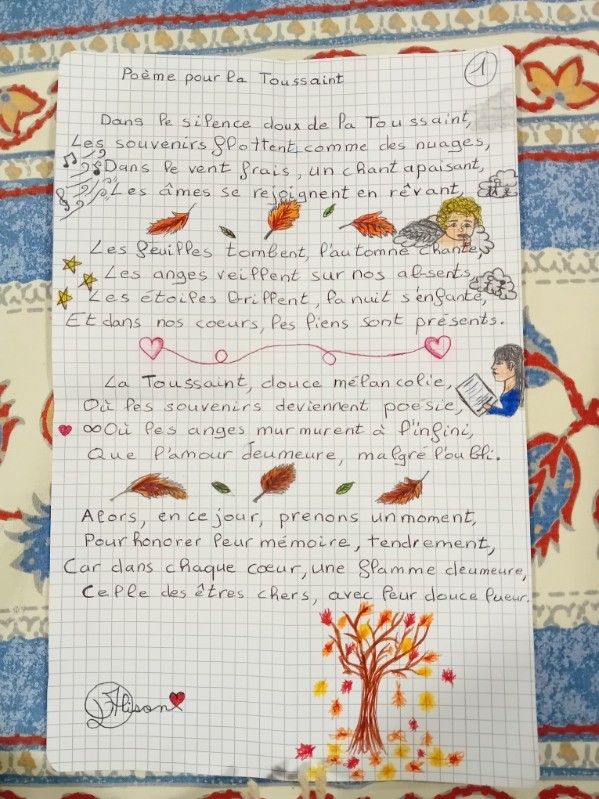 Poème pour la Toussaint
1
Dans le silence doux de la Toussaint,
Les souvenirs flottent comme des nuages,
Dans le vent frais, un chant apaisant,
Les âmes se rejoignent en rêvant,
Les feuilles tombent, l'automne chante,
Les anges veillent sur nos absents,
Les étoiles brillent, la nuit s'enfante,
Et dans nos coeurs, les liens sont présents.
La Toussaint, douce mélancolie,
Où les souvenirs deviennent poésie,
∞ Où les anges murmurent à l'infini,
Que l'amour deumeure, malgré l'oubli.
Alors, en ce jour, prenons un moment,
Pour honorer leur mémoire, tendrement,
Car dans chaque cœur, une flamme deumeure,
Celle des êtres chers, avec leur douce lueur.
Alison